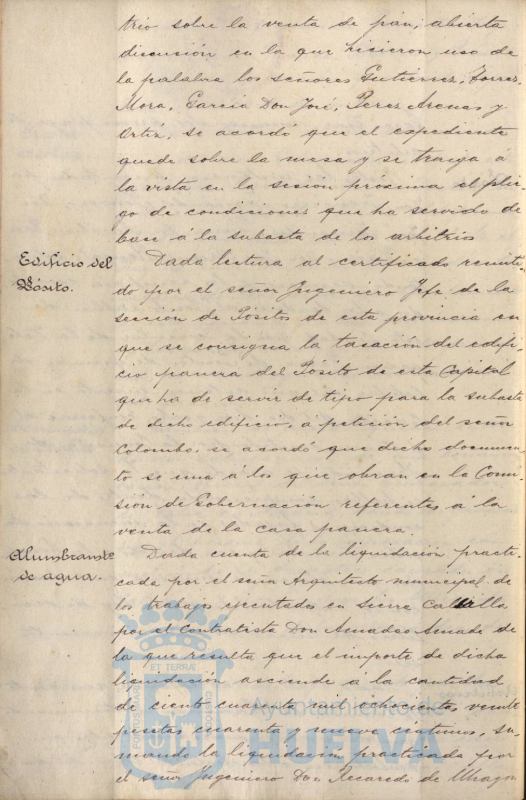 trio sobre la venta de pan; abierta
discusión en la que hicieron uso de
la palabra los señores Gutierrez, Torres,
Mora, García Don José, Perez Arenas y
Ortiz, se acordó que el expediente
quede sobre la mesa y se traiga á
la vista en la sesión próxima el plie-
go de condiciones que ha servido de
base á la subasta de los arbitrios
Edificio del
Pósito.
Dada lectura al certificado remiti-
do por el señor Ingeniero Jefe de la
sección de Pósitos de esta provincia en
que se consigna la tasación del edifi-
cio panera del Pósito de esta Capital
que ha de servir de tipo para la subasta
de dicho edificio, a petición del señor
Colombo, se acordó que dicho documen-
to se una á los que obran en la Comi-
sión de Gobernación referentes á la
venta de la casa panera.
Alumbramto
de agua.
Dada cuenta de la liquidación practi-
cada por el señor Arquitecto municipal de
los trabajos ejecutados en Sierra
por el Contratista Don Amadeo Amado de
la que resulta que el importe de dicha
liquidación asciende á la cantidad
de ciento cuarenta mil ochocientas veinte
pesetas cuarenta y nueve céntimos, su-
mando la liquidación practicada por
el señor Ingeniero Don Recaredo de Uhagon
Ayuntamiento de
HUELVA